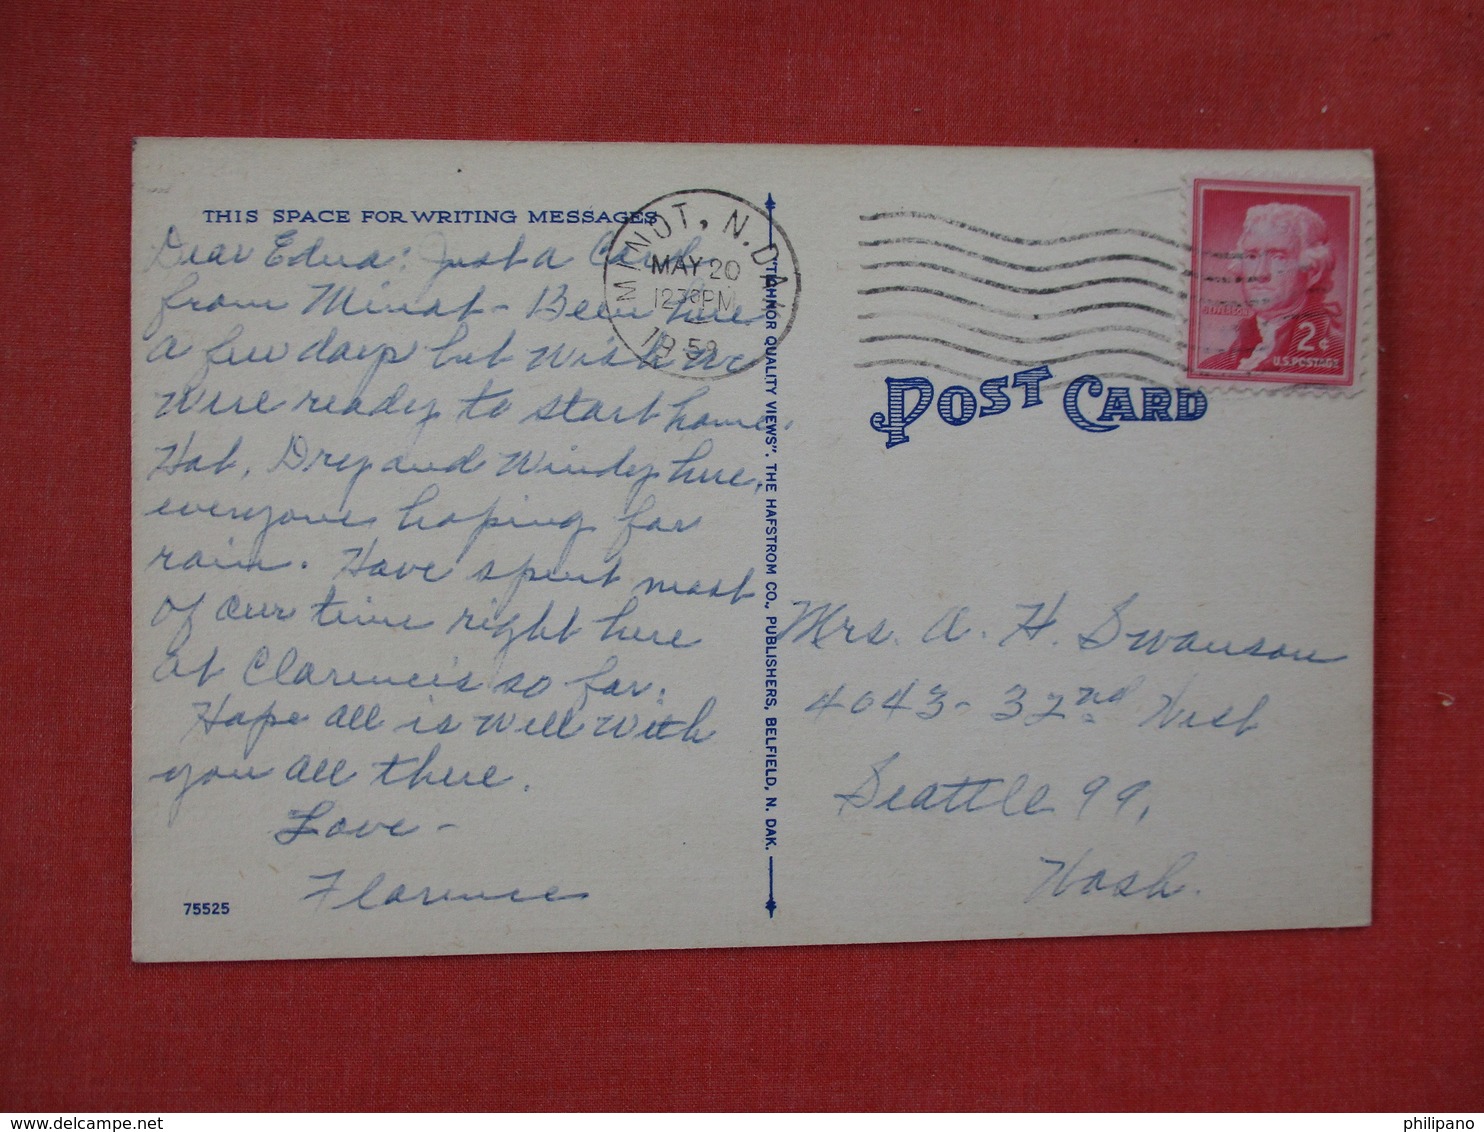 THIS SPACE FOR WRITING MESSAGES
Dear Edna: Just a Card
from Minot - Been here
a few days but Wish we
Were ready to start home.
Hot, Dry and Windy here,
everyone hoping for
rain. Have spent most
of our time right here
at Clarence's so far.
Hope all is well with
you all there.
Love -
Florence
75525
MINOT, N.DAK.
MAY 20
1230PM
"TICHNOR QUALITY VIEWS". THE HAFSTROM CO., PUBLISHERS, BELFIELD, N. DAK.
JEFFERSON
2¢
U.S. POSTAGE
POST CARD
Mrs. A. H. Swanson
4043 - 32nd West
Seattle 99,
Wash.
philipano